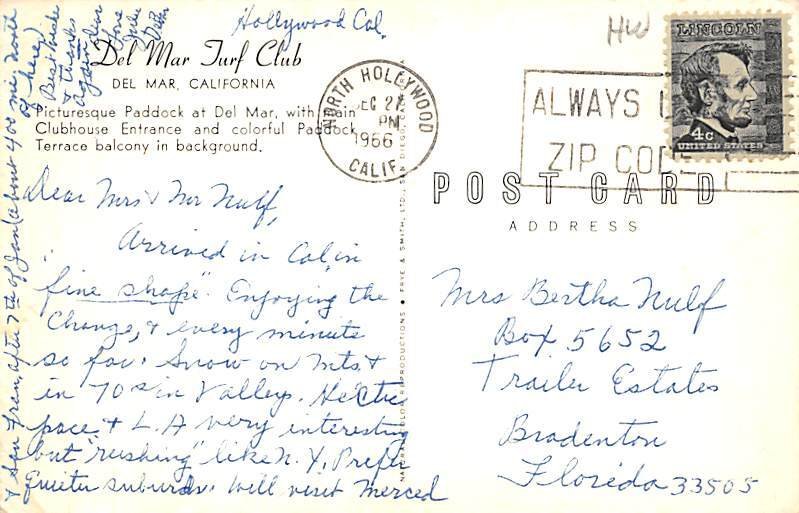 Hollywood Cal.
Del Mar Turf Club
DEL MAR, CALIFORNIA
Picturesque Paddock at Del Mar, with main
Clubhouse Entrance and colorful Paddock
Terrace balcony in background.
Dear Mrs & Mr Nulf,
Arrived in Cal, in
"fine shape". Enjoying the
Change, & every minute
so far. Snow on Mts. &
in 70s in Valleys. Hectic
pace & L.A very interesting
but "rushing" like N.Y. Prefer
Quieter suburds. Will visit Merced
& San Fran. after 7th of Jan (about 400 mi. north
of here)
Best wishes
& thanks
again
Love
Julie
NATURAL COLOR REPRODUCTIONS • FRYE & SMITH, LTD., SAN DIEGO, CALIF.
HW
LINCOLN
4c
UNITED STATES
NORTH HOLLYWOOD
DEC 27
PM
1966
CALIF
ALWAYS
ZIP CODE
POST CARD
ADDRESS
Mrs Bertha Nulf
Box 5652
Trailer Estates
Bradenton
Florida 33505